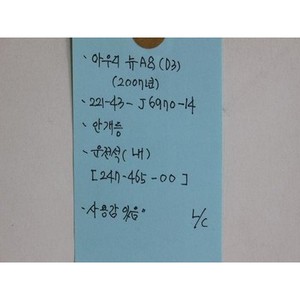 · 아우디 뉴A8 (D3)
(2007년)
· 221-43- J6970-14
· 안개등
· 운전석 ( 내 )
[ 247-465-00 ]
· 사용감 있음.
L/C